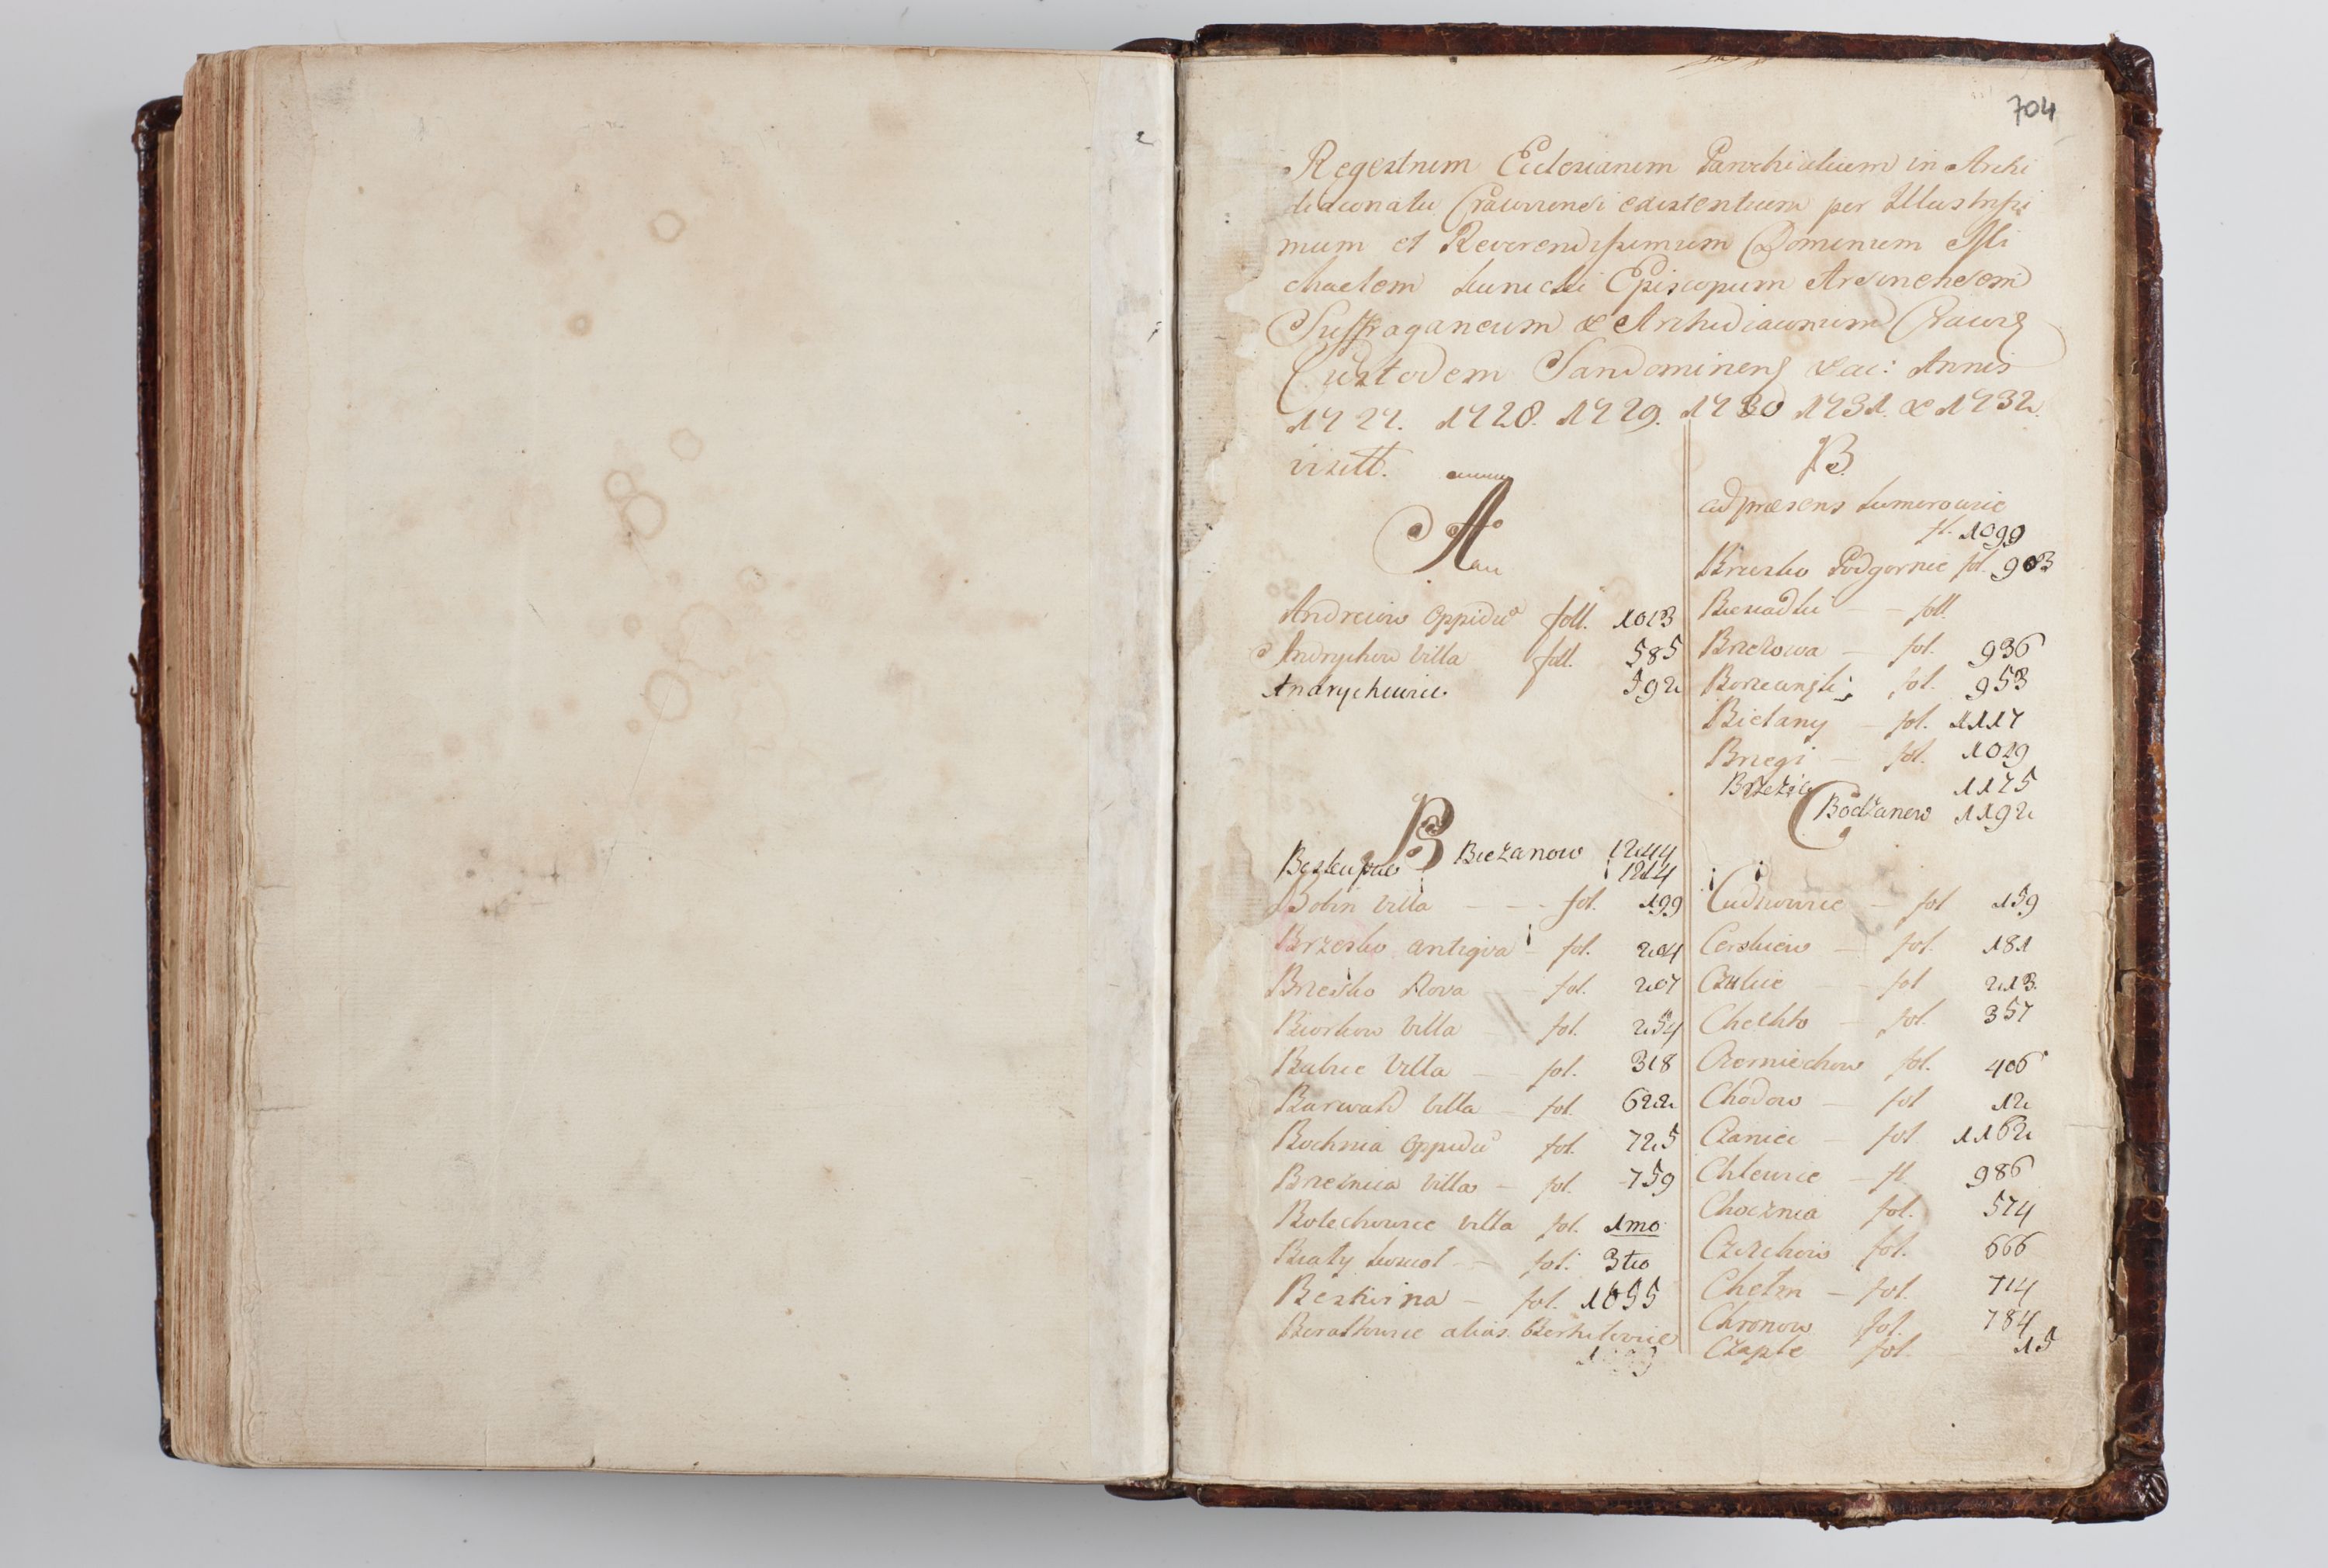 704
Regestrum Ecclesiarum Parochialium in Archi
diaconatu Cracoviensi existentium per Illustrissi
mum et Reverendissimum Dominum Mi
chaelem Kunicki Episcopum Arsinensem
Suffraganeum & Archidiaconum Cracov
Custodem Sandomiriens &c: Annis
1727. 1728. 1729. 1730 1731. & 1732.
visitt.
A
Andreiow Oppidu foll. 1013
Andrychow Villa foll. 585
Andrychowice. 592
B
Biezanow 1244
1214
Bobin Villa fol. 199
Brzesko antiqva fol. 204
Brzesko Nova fol. 207
Biorkow Villa fol. 254
Babice Villa fol. 318
Barwald Villa fol. 622
Bochnia Oppidu fol. 725
Brzeznica Villa fol. 759
Bolechowice Villa fol. 1mo
Biały Kosciol fol. 3tio
Bestwina fol. 1055
alias
B
ad praesens Kumorowice
fl. 1099
Podgornie fol. 903
foll.
Brzezowa fol. 936
fol. 953
Bielany fol. 1117
Brzegi fol. 1029
Brzezie 1175
Bodzanow 1192
C
Cudzowice fol 159
fol. 181
Czulice fol 213.
Chechło fol. 357
Czernichow fol. 406
Chodow fol 12
Czaniec fol 1162
Chlewice fl. 986
Chocznia fol. 574
Czchow fol. 666
Chełm fol. 714
Chronow fol. 784
Czaple fol. 15